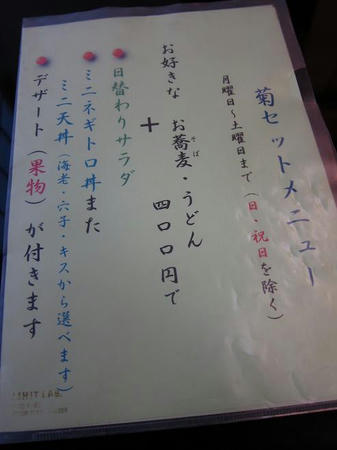 菊セットメニュー
月曜日～土曜日まで（日・祝日を除く）
お好きな お蕎麦・うどん
そば
＋ 四〇〇円で
日替わりサラダ
ミニネギトロ丼また
ミニ天丼（海老・穴子・キスから選べます）
デザート（果物）が付きます